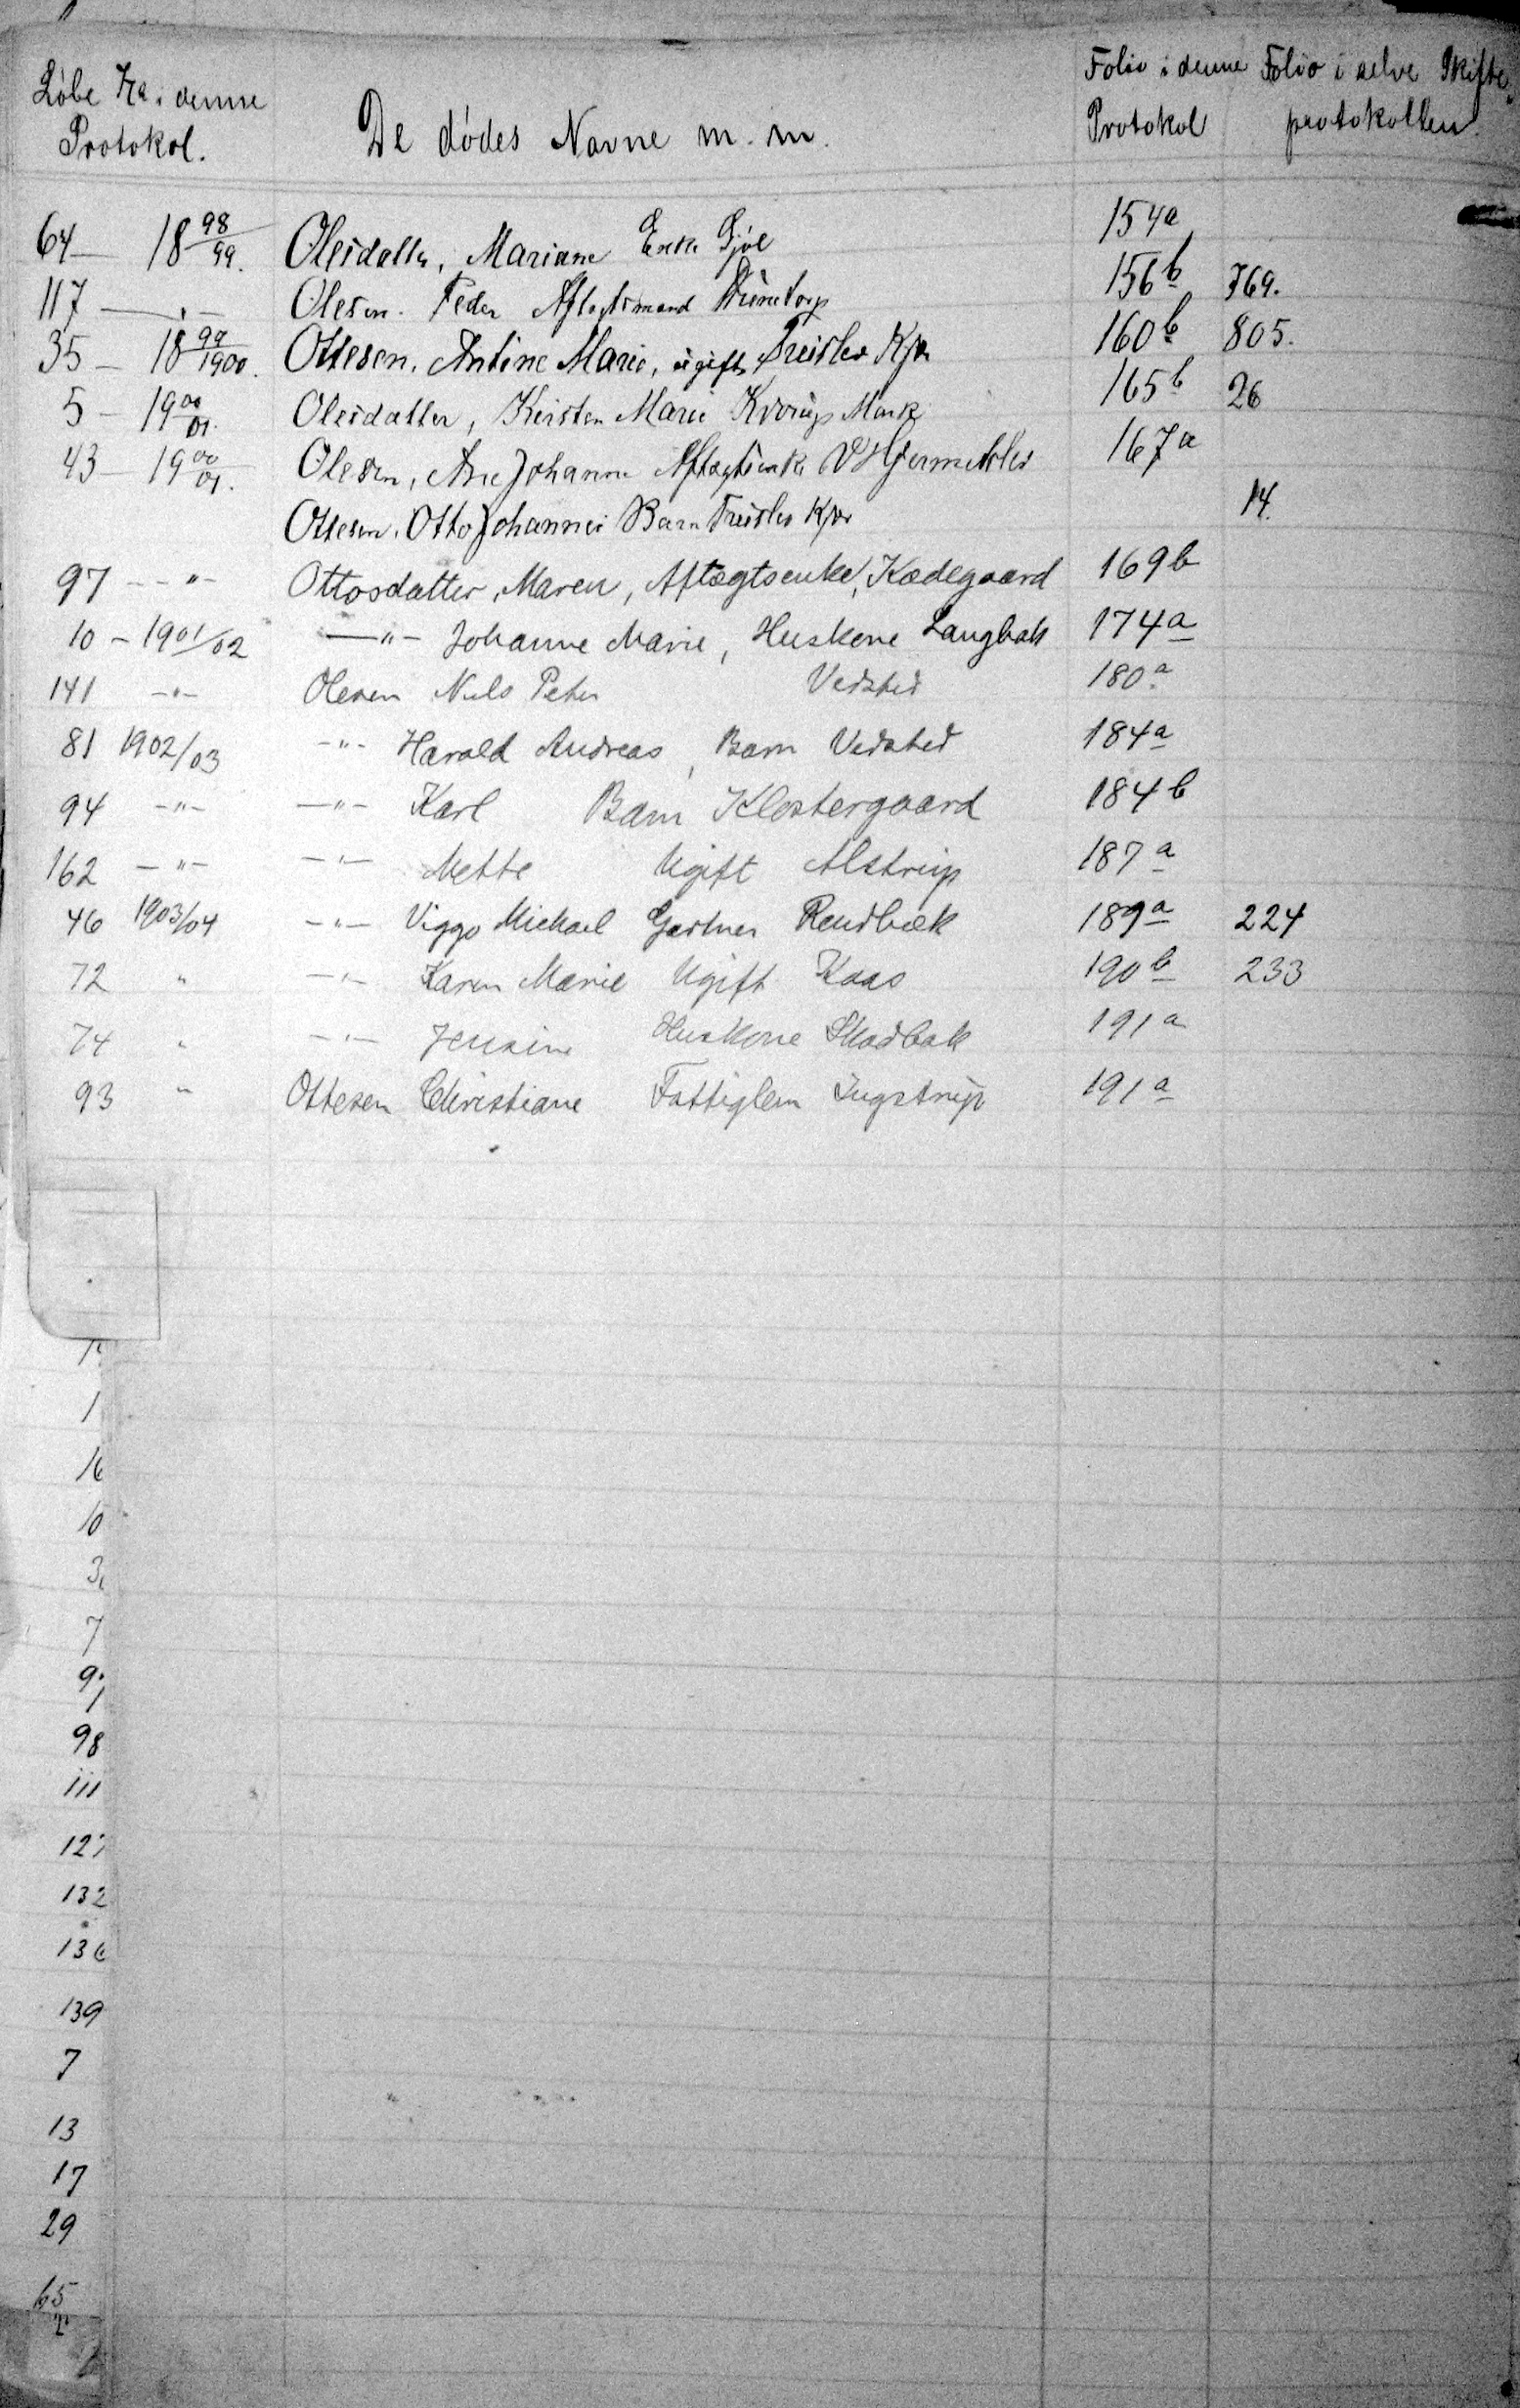 Løbe No. i denne Protokol. De dødes Navne m. m. Folio i denne Protokol Folio i selve Skifteprotokollen.
64 — 18 98/99. Olesdatter, Mariane Enke Gjøl 154a
117 — " — Olesen. Peder Aftægtsmand 156b 769.
35 — 18 99/1900. Ottesen, Antine Marie, ugift, Treislev Kjær 160b 805.
5 — 19 00/01. Olesdatter, Kirsten Marie Kvorup Mark 165b 26
43 — 19 00/01. Olesen, Ane Johanne Aftægtsenke V Hjermitslev 167a
Ottesen, Otto Johannes Barn Treislev Kjær 14.
97 — " — Ottosdatter, Maren, Aftægtsenke, Kodegaard 169b
10 — 1901/02 — " — Johanne Marie, Huskone Langbak 174a
141 — " — Olesen Niels Peter Vedsted 180a
81 1902/03 — " — Harald Andreas, Barn Vedsted 184a
94 — " — — " — Karl Barn Klostergaard 184b
162 — " — — " — Mette Ugift Alstrup 187a
46 1903/04 — " — Viggo Michael Gartner Rendbæk 189a 224
72 " — " — Karen Marie Ugift Kaas 190b 233
74 " — " — Jensine Huskone Skodbak 191a
93 " Ottesen Christiane Fattiglem Ingstrup 191a
1
16
10
3
7
9
98
111
127
132
136
139
7
13
17
29
65